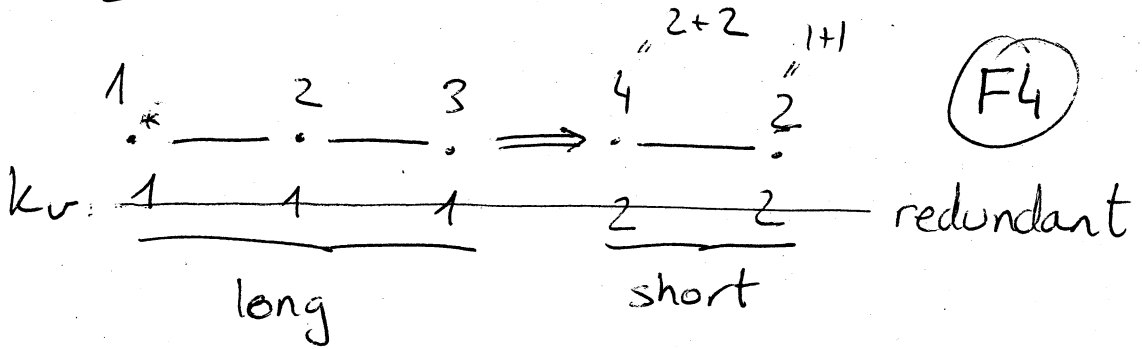 2+2 1+1
1 2 3 4 2 F4
*
kv: 1 1 1 2 2 redundant
long short